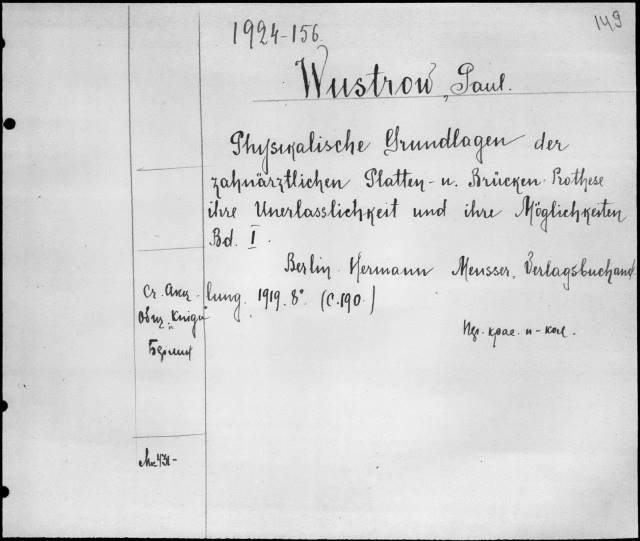 149
1924-156
Wustrow, Paul.
Physikalische Grundlagen der
zahnärztlichen Platten- u. Brücken-Prothese
ihre Unerlasslichkeit und ihre Möglichkeiten
Bd. I.
Berlin. Hermann Meusser, Verlagsbuchand
lung. 1919. 8° (С. 190.)
Ст. Акц.
Общ. „Книга"
Берлин